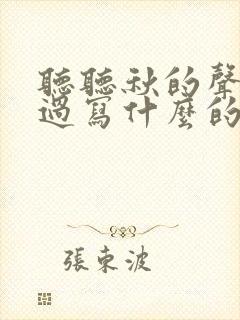 聽聽秋的聲
過寫什麼的
張東波